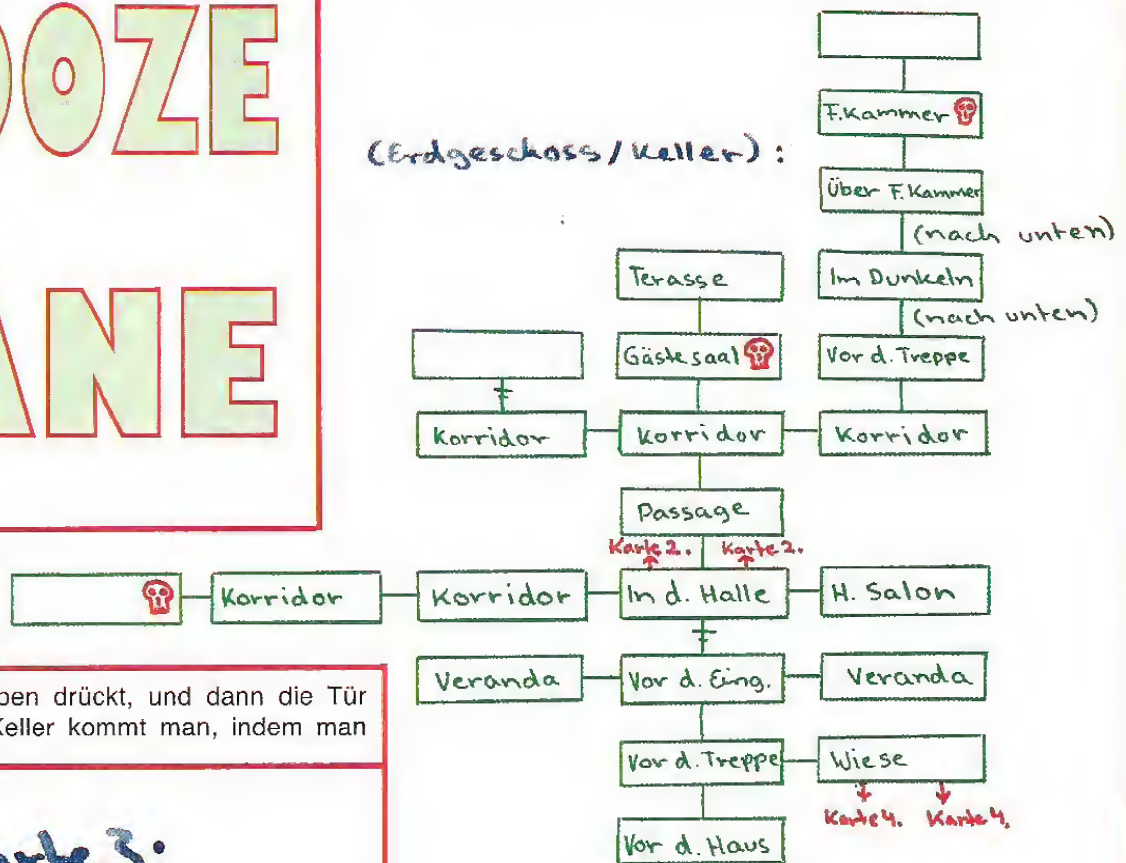 OOZE
ANE
(Erdgeschoss / Keller) :
F.Kammer
Über F. Kammer
(nach unten)
Im Dunkeln
(nach unten)
Terasse
Gästesaal
Vor d. Treppe
Korridor
Korridor
Korridor
Passage
Karte 2. Karte 2.
Korridor
Korridor
In d. Halle
H. Salon
Veranda
Vor d. Eing.
Veranda
Vor d. Treppe
Wiese
Karte 4. Karte 4.
Vor d. Haus
ben drückt, und dann die Tür
Keller kommt man, indem man
arte 3.